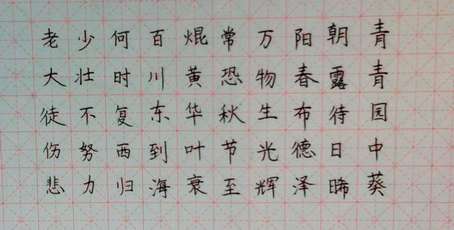 青青园中葵
朝露待日晞
阳春布德泽
万物生光辉
常恐秋节至
焜黄华叶衰
百川东到海
何时复西归
少壮不努力
老大徒伤悲